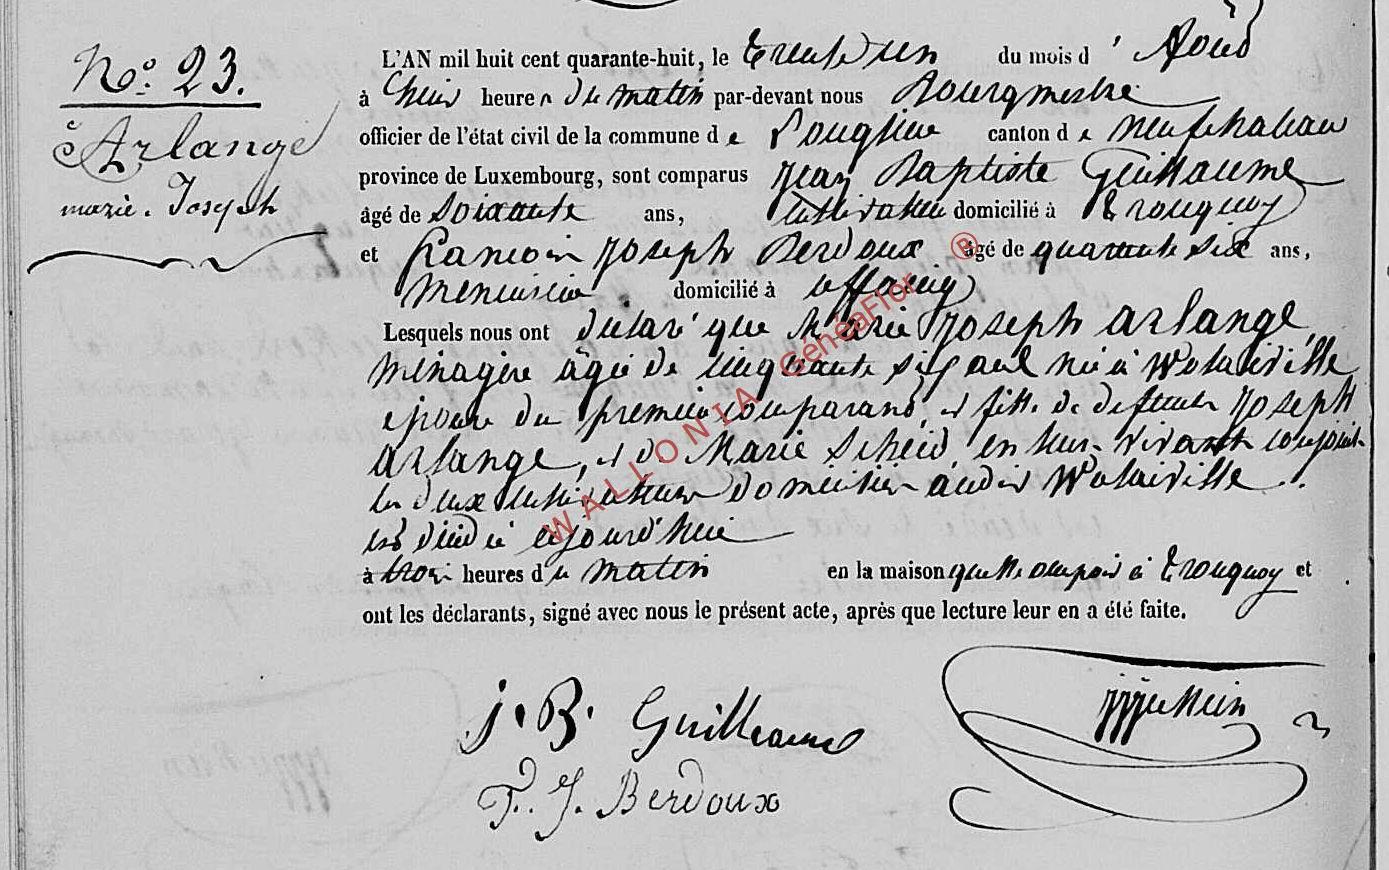 No. 23.
Arlange
marie. Joseph
L'AN mil huit cent quarante-huit, le trente un du mois d' Aoud
à heures du matin par-devant nous Bourgmestre
officier de l'état civil de la commune de Longlier canton de neufchateau
province de Luxembourg, sont comparus Jean Baptiste Guillaume
âgé de soixante ans, cultivateur domicilié à Tronquoy
et Francois Joseph Berdoux âgé de quarante six ans,
menuisier. domicilié à offaing
Lesquels nous ont declaré que Marie Joseph arlange,
ménagère âgée de cinquante six ans née à Wolaiville
epouse du premier comparand, et fille de defeunts Joseph
arlange, et de Marie Scheid en leur vivant conjoint
les deux cultivateurs domiciliés audit Wolaiville.
est decedée aujourd'huie
à trois heures du matin en la maison quelle occupoit à Tronquoy et
ont les déclarants, signé avec nous le présent acte, après que lecture leur en a été faite.
J. B. Guilleaume
F. J. Berdoux
WALLONIA GénéaFlor ®